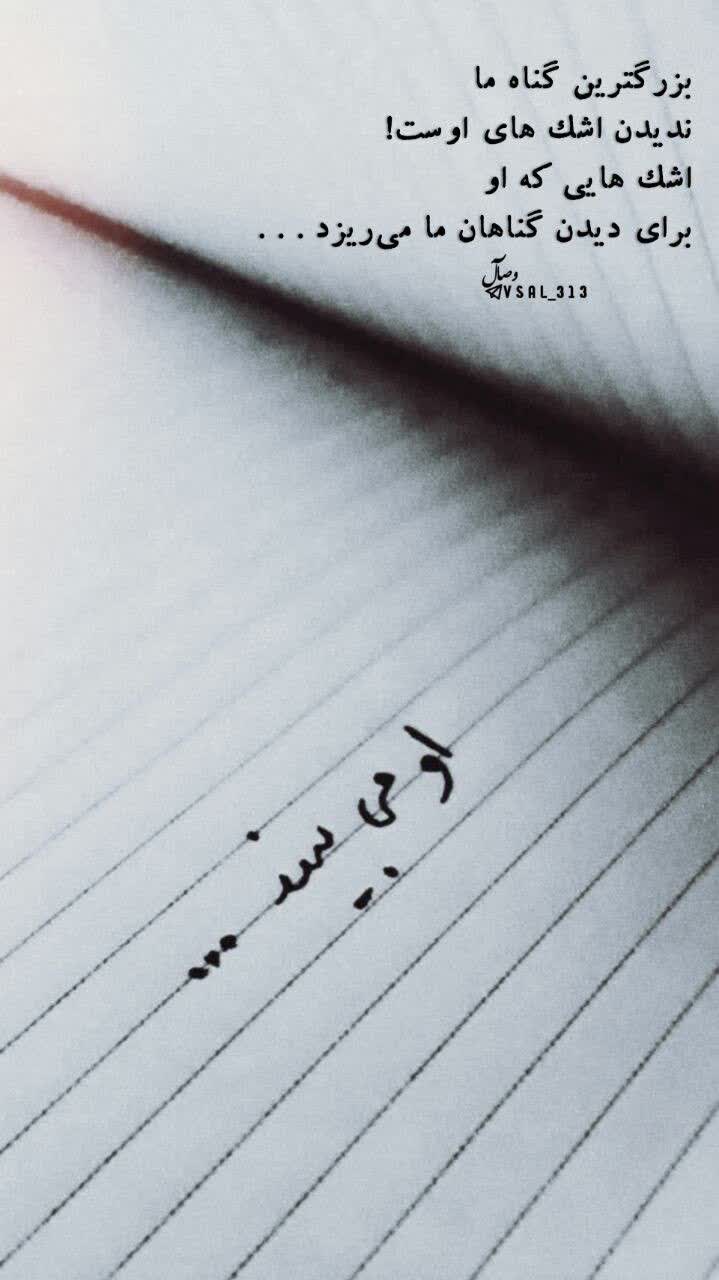 بزرگترین گناه ما
ندیدن اشك های اوست!
اشك هایی که او
برای دیدن گناهان ما می‌ریزد ...
وصال
VSAL_313
او می بیند ...